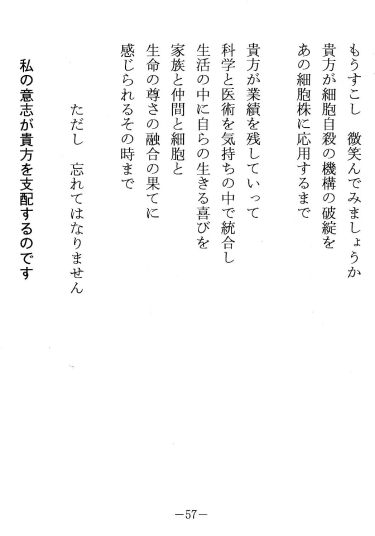 もうすこし　微笑んでみましょうか
貴方が細胞自殺の機構の破綻を
あの細胞株に応用するまで
貴方が業績を残していって
科学と医術を気持ちの中で統合し
生活の中に自らの生きる喜びを
家族と仲間と細胞と
生命の尊さの融合の果てに
感じられるその時まで
ただし　忘れてはなりません
私の意志が貴方を支配するのです
－57－